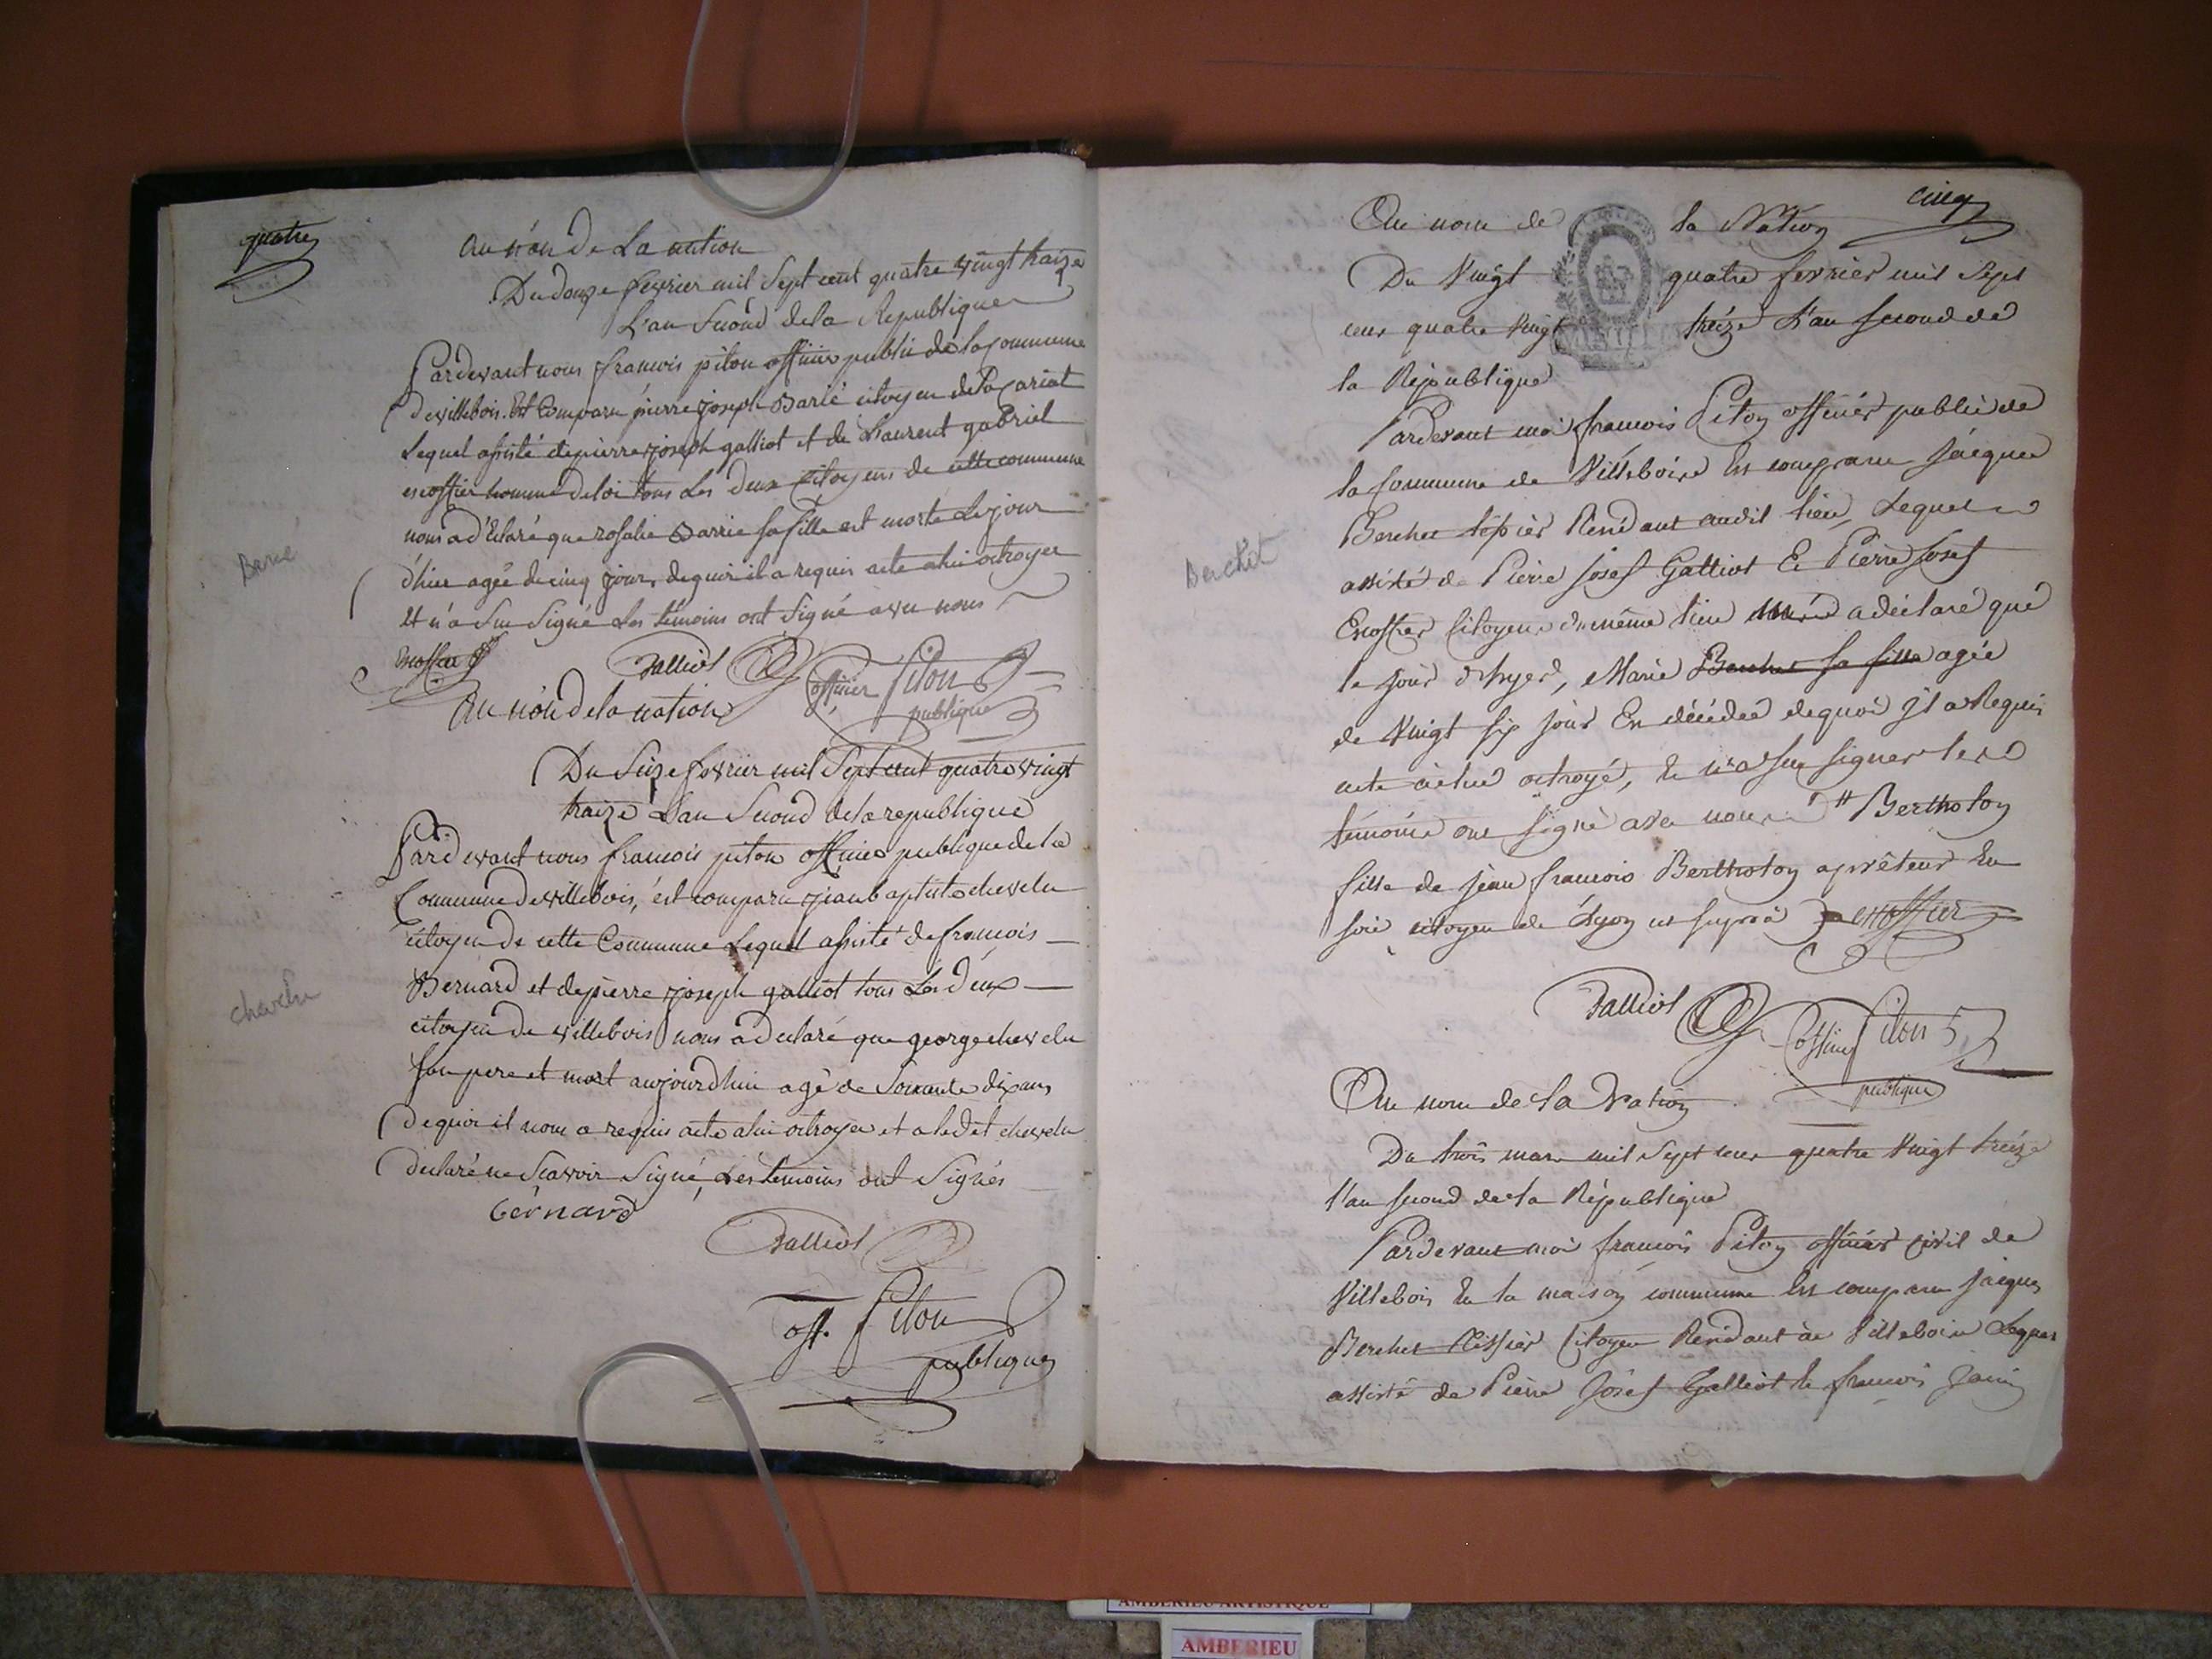 quatre
au nón De La nation
Du douze fevrier mil Sept cent quatre vingt traize
L'an Second dela Republique
Pardevant nous francois piton officier public de la Commune
de villebois. Est Comparu pierre joseph Barié citoyen de
Lequel assisté de pierre joseph galliot et de Laurent gabriel
escoffier homme de loi tous Les Deux Citoyens de cette commune
nous a déClaré que rosalie Barrie sa fille est morte Le jour
d'hier agée de cinq jours, de quoi il a requis acte a lui octroyer
et n'a Su Signé Les témoins ont Signé avec nous
Barié
Escoffier Galliot Piton officier
publique
Au nón de la nation
Du Seize fevrier mil Sept cent quatre vingt
traize L'an Second de la republique
Pardevant nous francois piton officier publique de la
Commune de villebois, est comparu jean baptiste chevelu
citoyen de cette Commune Lequel assisté de francois
Bernard et de pierre joseph galliot tous Les deux
citoyen de villebois nous a déclaré que george chevelu
Son pere et mort aujourdhui agé de Soixante dix ans
De quoi il nous a requis acte a lui octroyer et a ledit chevelu
déclaré ne Scavoir Signé, Les témoins ont Signés
chevelu
bernard
Galliot
off. Piton
publique
cinq
Au nom de la Nation
Du Vingt quatre fevrier mil Sept
cent quatre Vingt treize L'an second de
la République
Pardevant moi francois Piton officier public de
la Commune de Villebois Est comparu Jacques
Berchet Résidant audit lieu, Lequel
assisté de Pierre Josef Galliot Et Pierre Josef
Escoffier Citoyens du même lieu a déclaré que
le jour d'hyer, Marie Berchet sa fille agée
de Vingt six jours Est décédée de quoi il a Requis
acte à lui octroyé, Et n'a su signer les
témoins ont signé avec nous # Bertholon
fille de jean francois Bertholon aprêteur En
soie citoyen de Lyon ut supra escoffier
Berchet
Galliot Piton officier
publique
Au nom de la Nation
Du trois mars mil Sept cent quatre Vingt treize
l'an second de la République
Pardevant moi francois Piton officier civil de
Villebois En la maison commune Est comparu Jacques
Berchet Citoyen Residant à Villebois Lequel
assisté de Pierre Josef Galliot Et francois Janin
AMBERIEU ARTISTIQUE
AMBERIEU